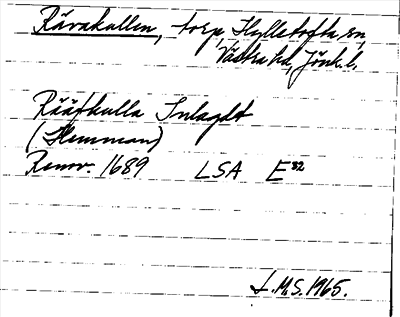 Rävakullen, torp, Hylletofta sn,
Västra hd, Jönk. l.
Rääfkulla Inlagdt
(Hemman)
Renov. 1689 LSA E 32
L.M.S. 1965.